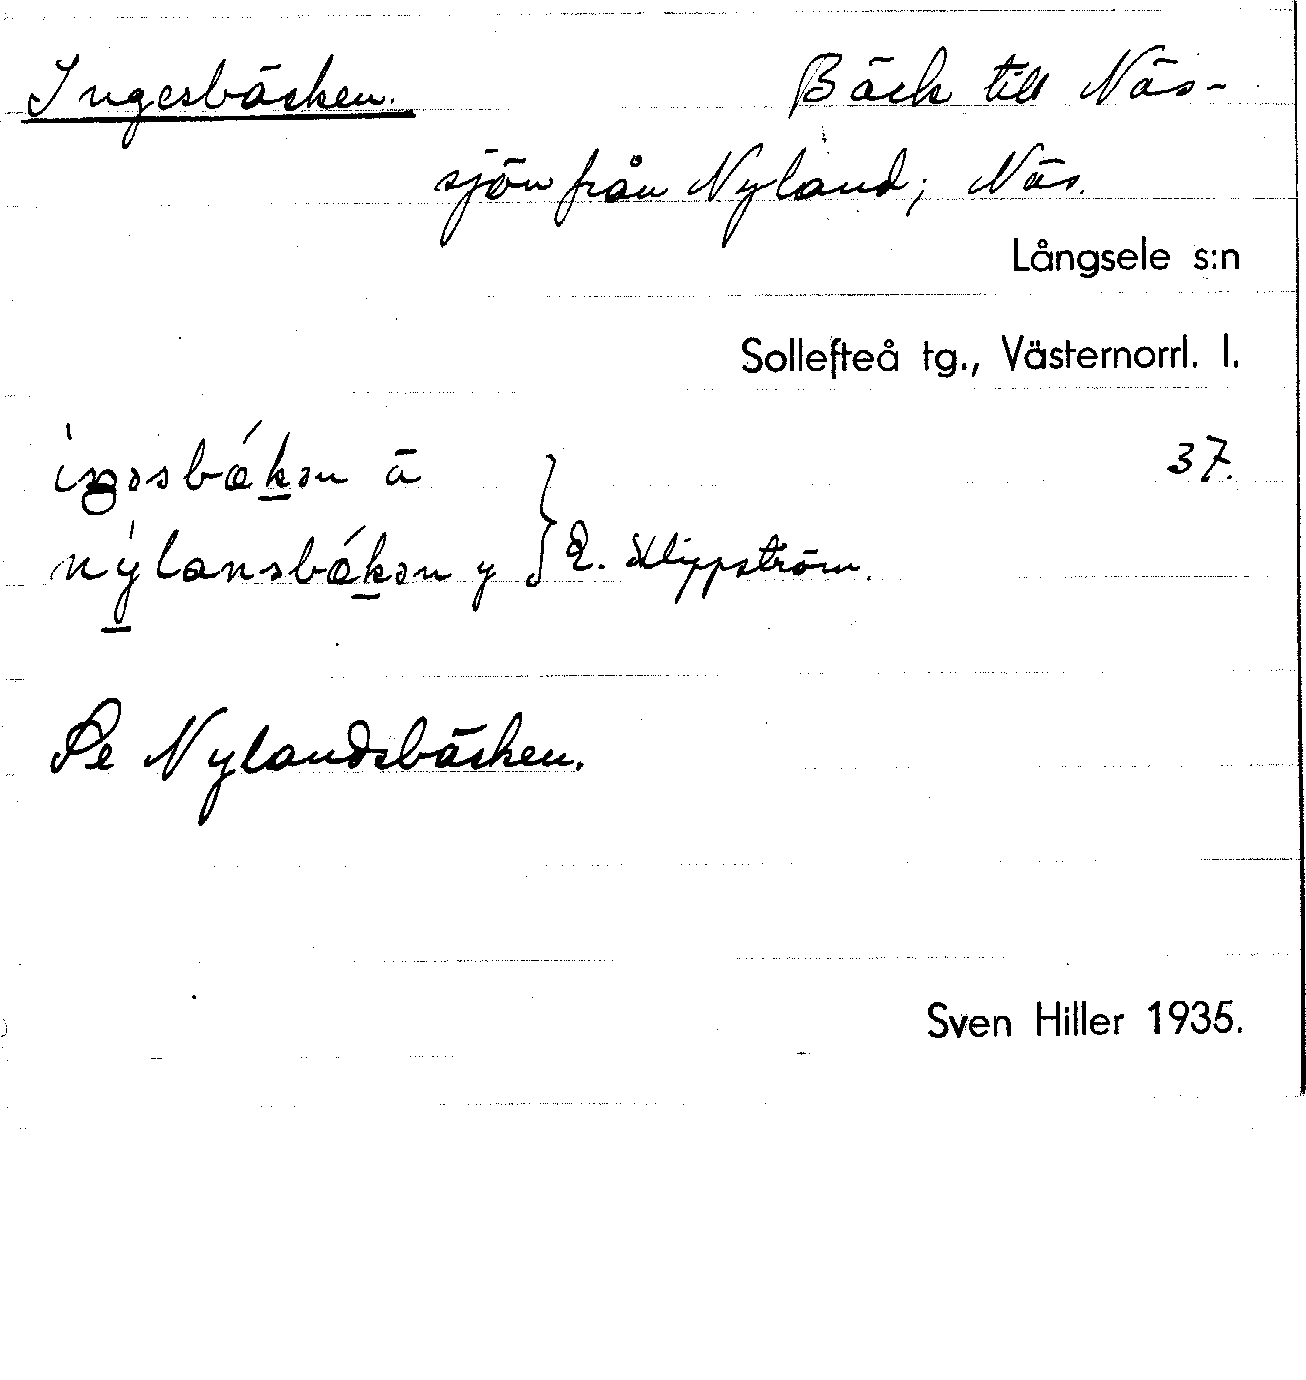 Ingesbäcken. Bäck till Näs-
sjön från Nyland; Näs.
Långsele s:n
Sollefteå tg., Västernorrl. l.
iŋəsbǽkən ä 37.
nýlansbǽkən y } E. Klippström.
Se Nylandsbäcken.
Sven Hiller 1935.